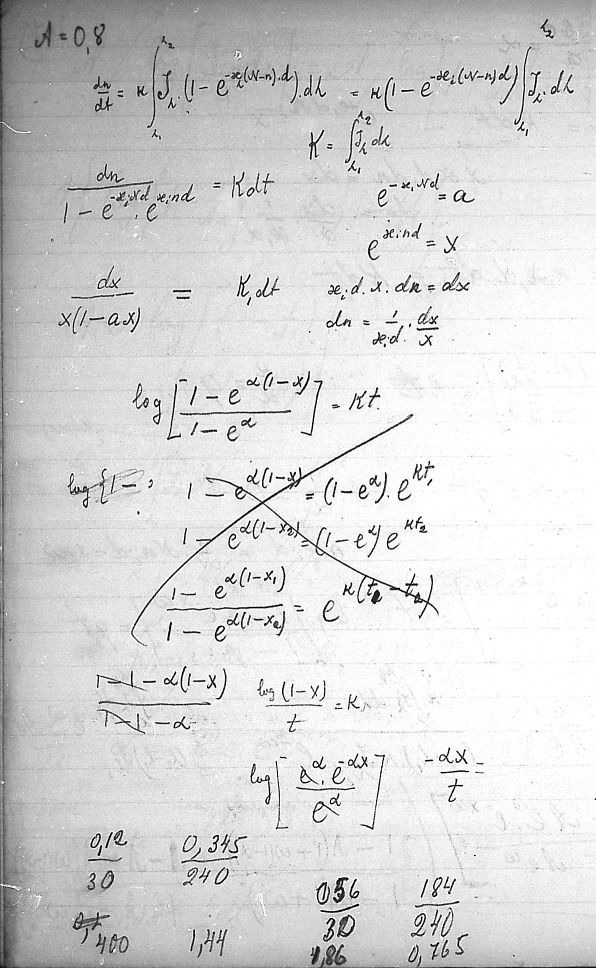 A = 0,8
dn/dt = κ ∫_{λ₁}^{λ₂} J_λ (1 - e^{-ϰ_i(N-n)·d})·dλ = κ(1 - e^{-ϰ_i(N-n)d}) ∫_{λ₁}^{λ₂} J_λ·dλ
K = ∫_{λ₁}^{λ₂} J_λ dλ
dn / (1 - e^{-ϰ_i Nd}·e^{ϰ_i nd}) = K dt
e^{-ϰ_i Nd} = a
e^{ϰ_i nd} = x
dx / (x(1-ax)) = K₁dt
ϰ_i d·x·dn = dx
dn = 1/(ϰ_i d) · dx/x
log [(1 - e^{α(1-x)}) / (1 - e^α)] = Kt
log {1 -
1 - e^{α(1-x)} = (1 - e^α)·e^{Kt₁}
1 - e^{α(1-x₂)} = (1 - e^α) e^{Kt₂}
(1 - e^{α(1-x₁)}) / (1 - e^{α(1-x₂)}) = e^{κ(t₂ - t₂)}
(1 - 1 - α(1-x)) / (1 - 1 - α)
log (1-x) / t = K
log [(e^α·e^{-αx}) / e^α]
-αx / t =
0,12 / 30
0,345 / 240
056 / 30
184 / 240
400
1,44
1,86
0,765